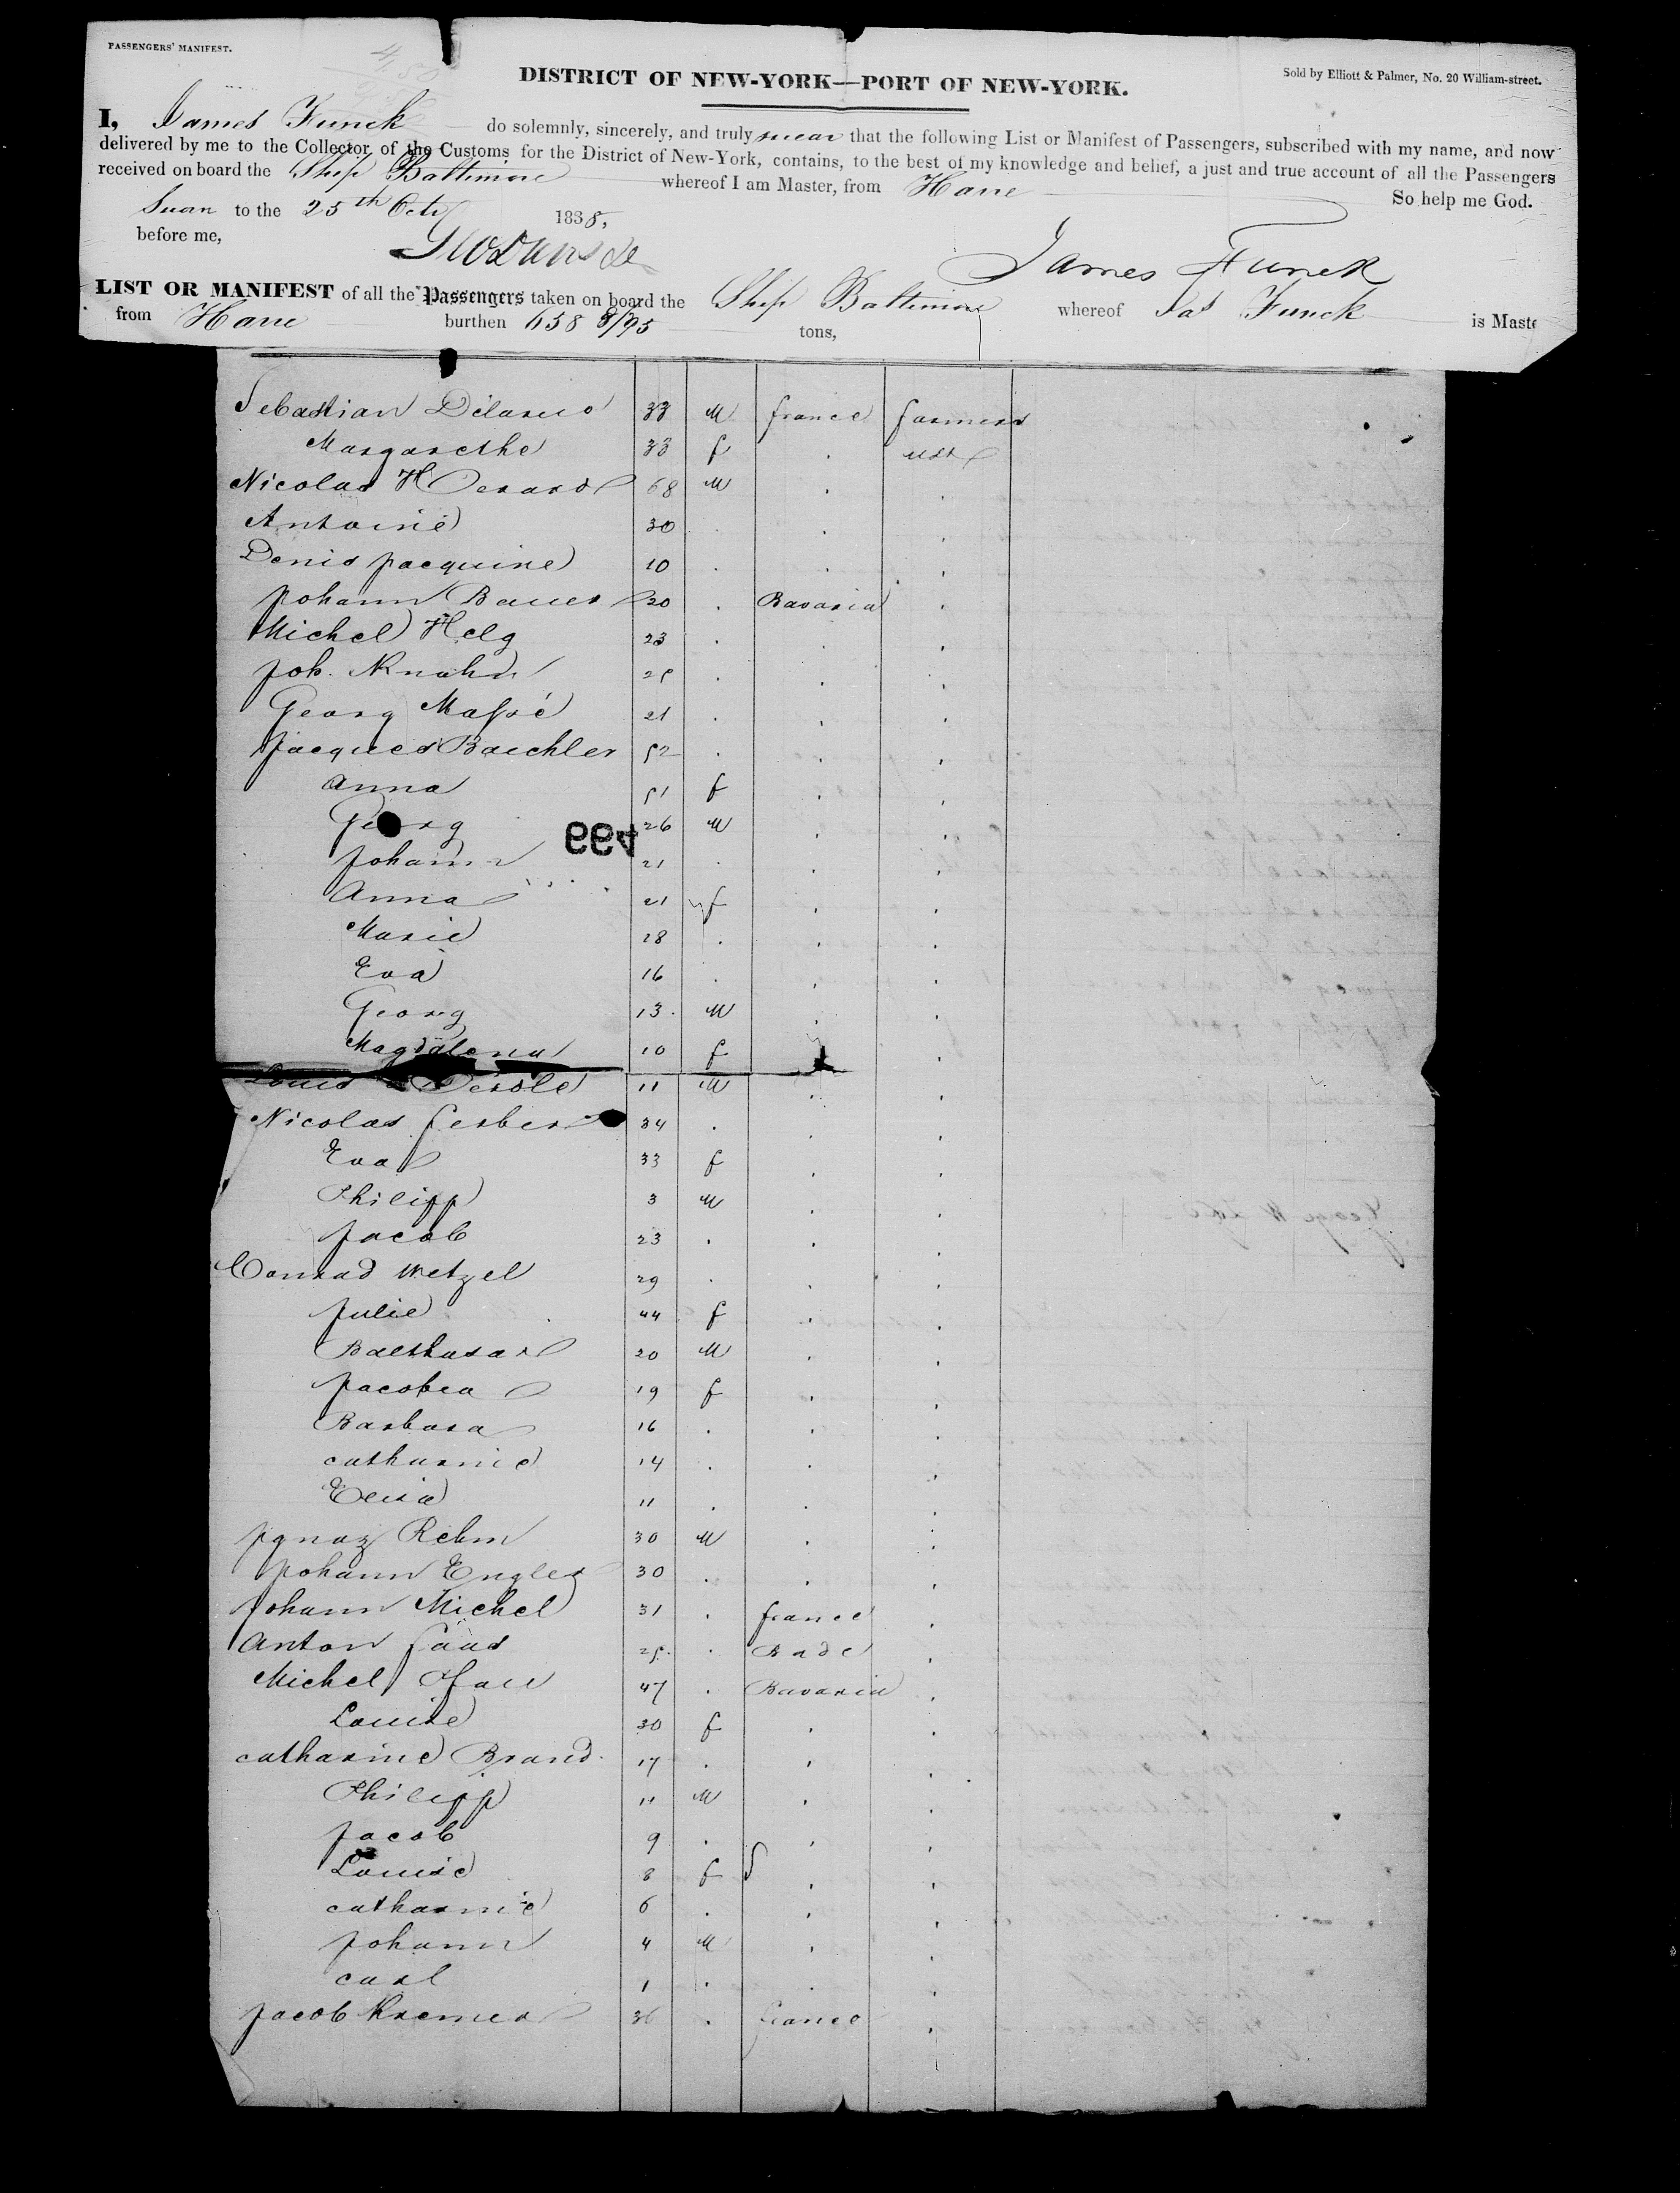 PASSENGERS' MANIFEST.
DISTRICT OF NEW-YORK—PORT OF NEW-YORK.
Sold by Elliott & Palmer, No. 20 William-street.
I, James Funck do solemnly, sincerely, and truly swear that the following List or Manifest of Passengers, subscribed with my name, and now
delivered by me to the Collector of the Customs for the District of New-York, contains, to the best of my knowledge and belief, a just and true account of all the Passengers
received on board the Ship Baltimore whereof I am Master, from Havre
So help me God.
to the 25th Octr 1838,
before me,
James Funck
LIST OR MANIFEST of all the Passengers taken on board the Ship Baltimore whereof Jas Funck is Maste
from Havre burthen 658 tons,
Sebastian 33 M france farmers
Margarethe 33 f .
Nicolas 68 M . .
Antoine 30 . . .
Denis Jacquine 10 . . .
Johann Bauer 20 . Bavaria .
Michel Helg 23 . . .
Joh. 25 . . .
Georg Massé 21 . . .
Jacques Baechler 52 . . .
Anna 51 f . .
Georg 26 M . .
Johann 21 . . .
Anna 21 f . .
Marie 18 . . .
Eva 16 . . .
Georg 13 M . .
Magdalena 10 f .
Louis 11 M . .
Nicolas Gerber 34 . . .
Eva 33 f . .
Philipp 3 M . .
Jacob 23 . . .
Conrad Wetzel 29 . . .
Julie 44 f . .
Balthasar 20 M . .
Jacobea 19 f . .
Barbara 16 . . .
catharine 14 . . .
Elisa 11 . . .
Jgnaz Rehm 30 M . .
Johann Engler 30 . . .
Johann Michel 31 . france .
Anton Gaus 25 . Bade .
Michel 47 . Bavaria .
Louise 30 f . .
catharine Brand 17 . . .
Philipp 11 M . .
Jacob 9 . . .
Louise 8 f . .
catharine 6 . . .
Johann 4 M . .
carl 1 . . .
Jacob Kremer 36 . france .